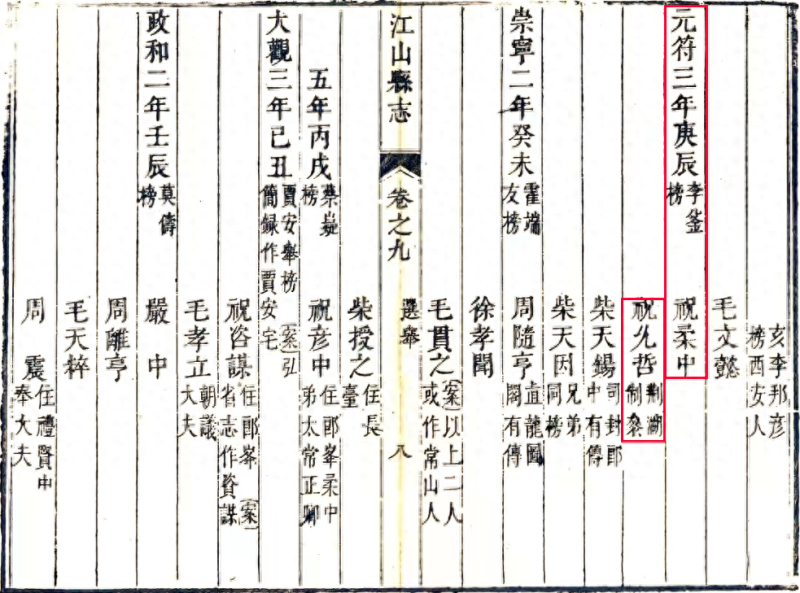 亥李邦彥
榜西安人
毛文懿
元符三年庚辰 李釜榜 祝柔中
祝允哲 荆湖制叅
柴天錫 司封郎中有傳
柴天因 兄弟同榜
崇寧二年癸未 霍端友榜 周隨亨 直龍圖閣有傳
徐孝聞
毛貫之 (案)以上二人或作常山人
江山縣志 卷之九 選舉 八
柴授之 任長臺
五年丙戌 蔡嶷榜 祝彥中 任郎峯柔中弟太常正卿
大觀三年己丑 賈安舉榜(案)弘簡録作賈安宅
祝咨謀 任郎峯(案)省志作資謀
毛孝立 朝議大夫
政和二年壬辰 莫儔榜 嚴中
周離亨
毛天梓
周震 任禮賢中奉大夫